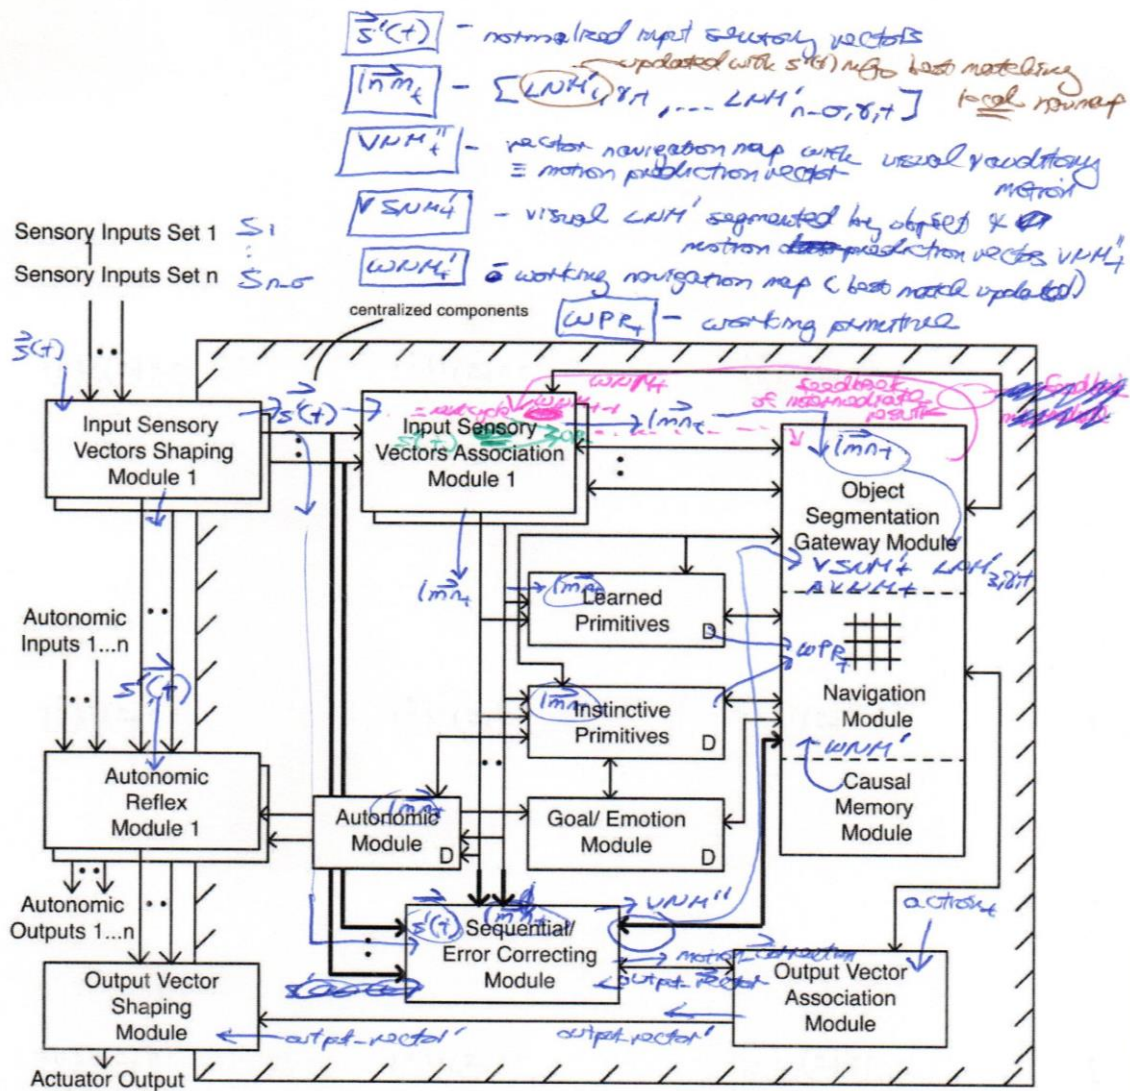 s'(t) - normalized input sensory vectors
updated with s'(t) best matching
lnm_t - [LNM'_1,γ,t , .... LNM'_n-σ,γ,t] local navmap
VNM''_t - vector navigation map with visual & auditory
≡ motion prediction vector motion
VSNM'_t - visual LNM' segmented by object &
motion prediction vector VNM''_t
WNM'_t working navigation map (best match updated)
WPR_t - working primitive
Sensory Inputs Set 1 S_1
Sensory Inputs Set n S_n-σ
centralized components
s(t)
s'(t)
WNM'_t
feedback
of intermediate
results
lnm_t
s'(t)
Input Sensory
Vectors Shaping
Module 1
Input Sensory
Vectors Association
Module 1
lnm_t
Object
Segmentation
Gateway Module
VSNM'_t LNM'_3,γ,t
AVNM_t
lnm_t
lnm_t
Learned
Primitives
D
WPR_t
Autonomic
Inputs 1...n
s'(t)
lnm_t
Instinctive
Primitives
D
Navigation
Module
WNM'
Causal
Memory
Module
Autonomic
Reflex
Module 1
lnm_t
Autonomic
Module
D
Goal/ Emotion
Module
D
Autonomic
Outputs 1...n
s'(t)
lnm_t
VNM''
Sequential/
Error Correcting
Module
motion_correction
output_vector
action_t
Output Vector
Association
Module
Output Vector
Shaping
Module
output_vector'
output_vector'
Actuator Output